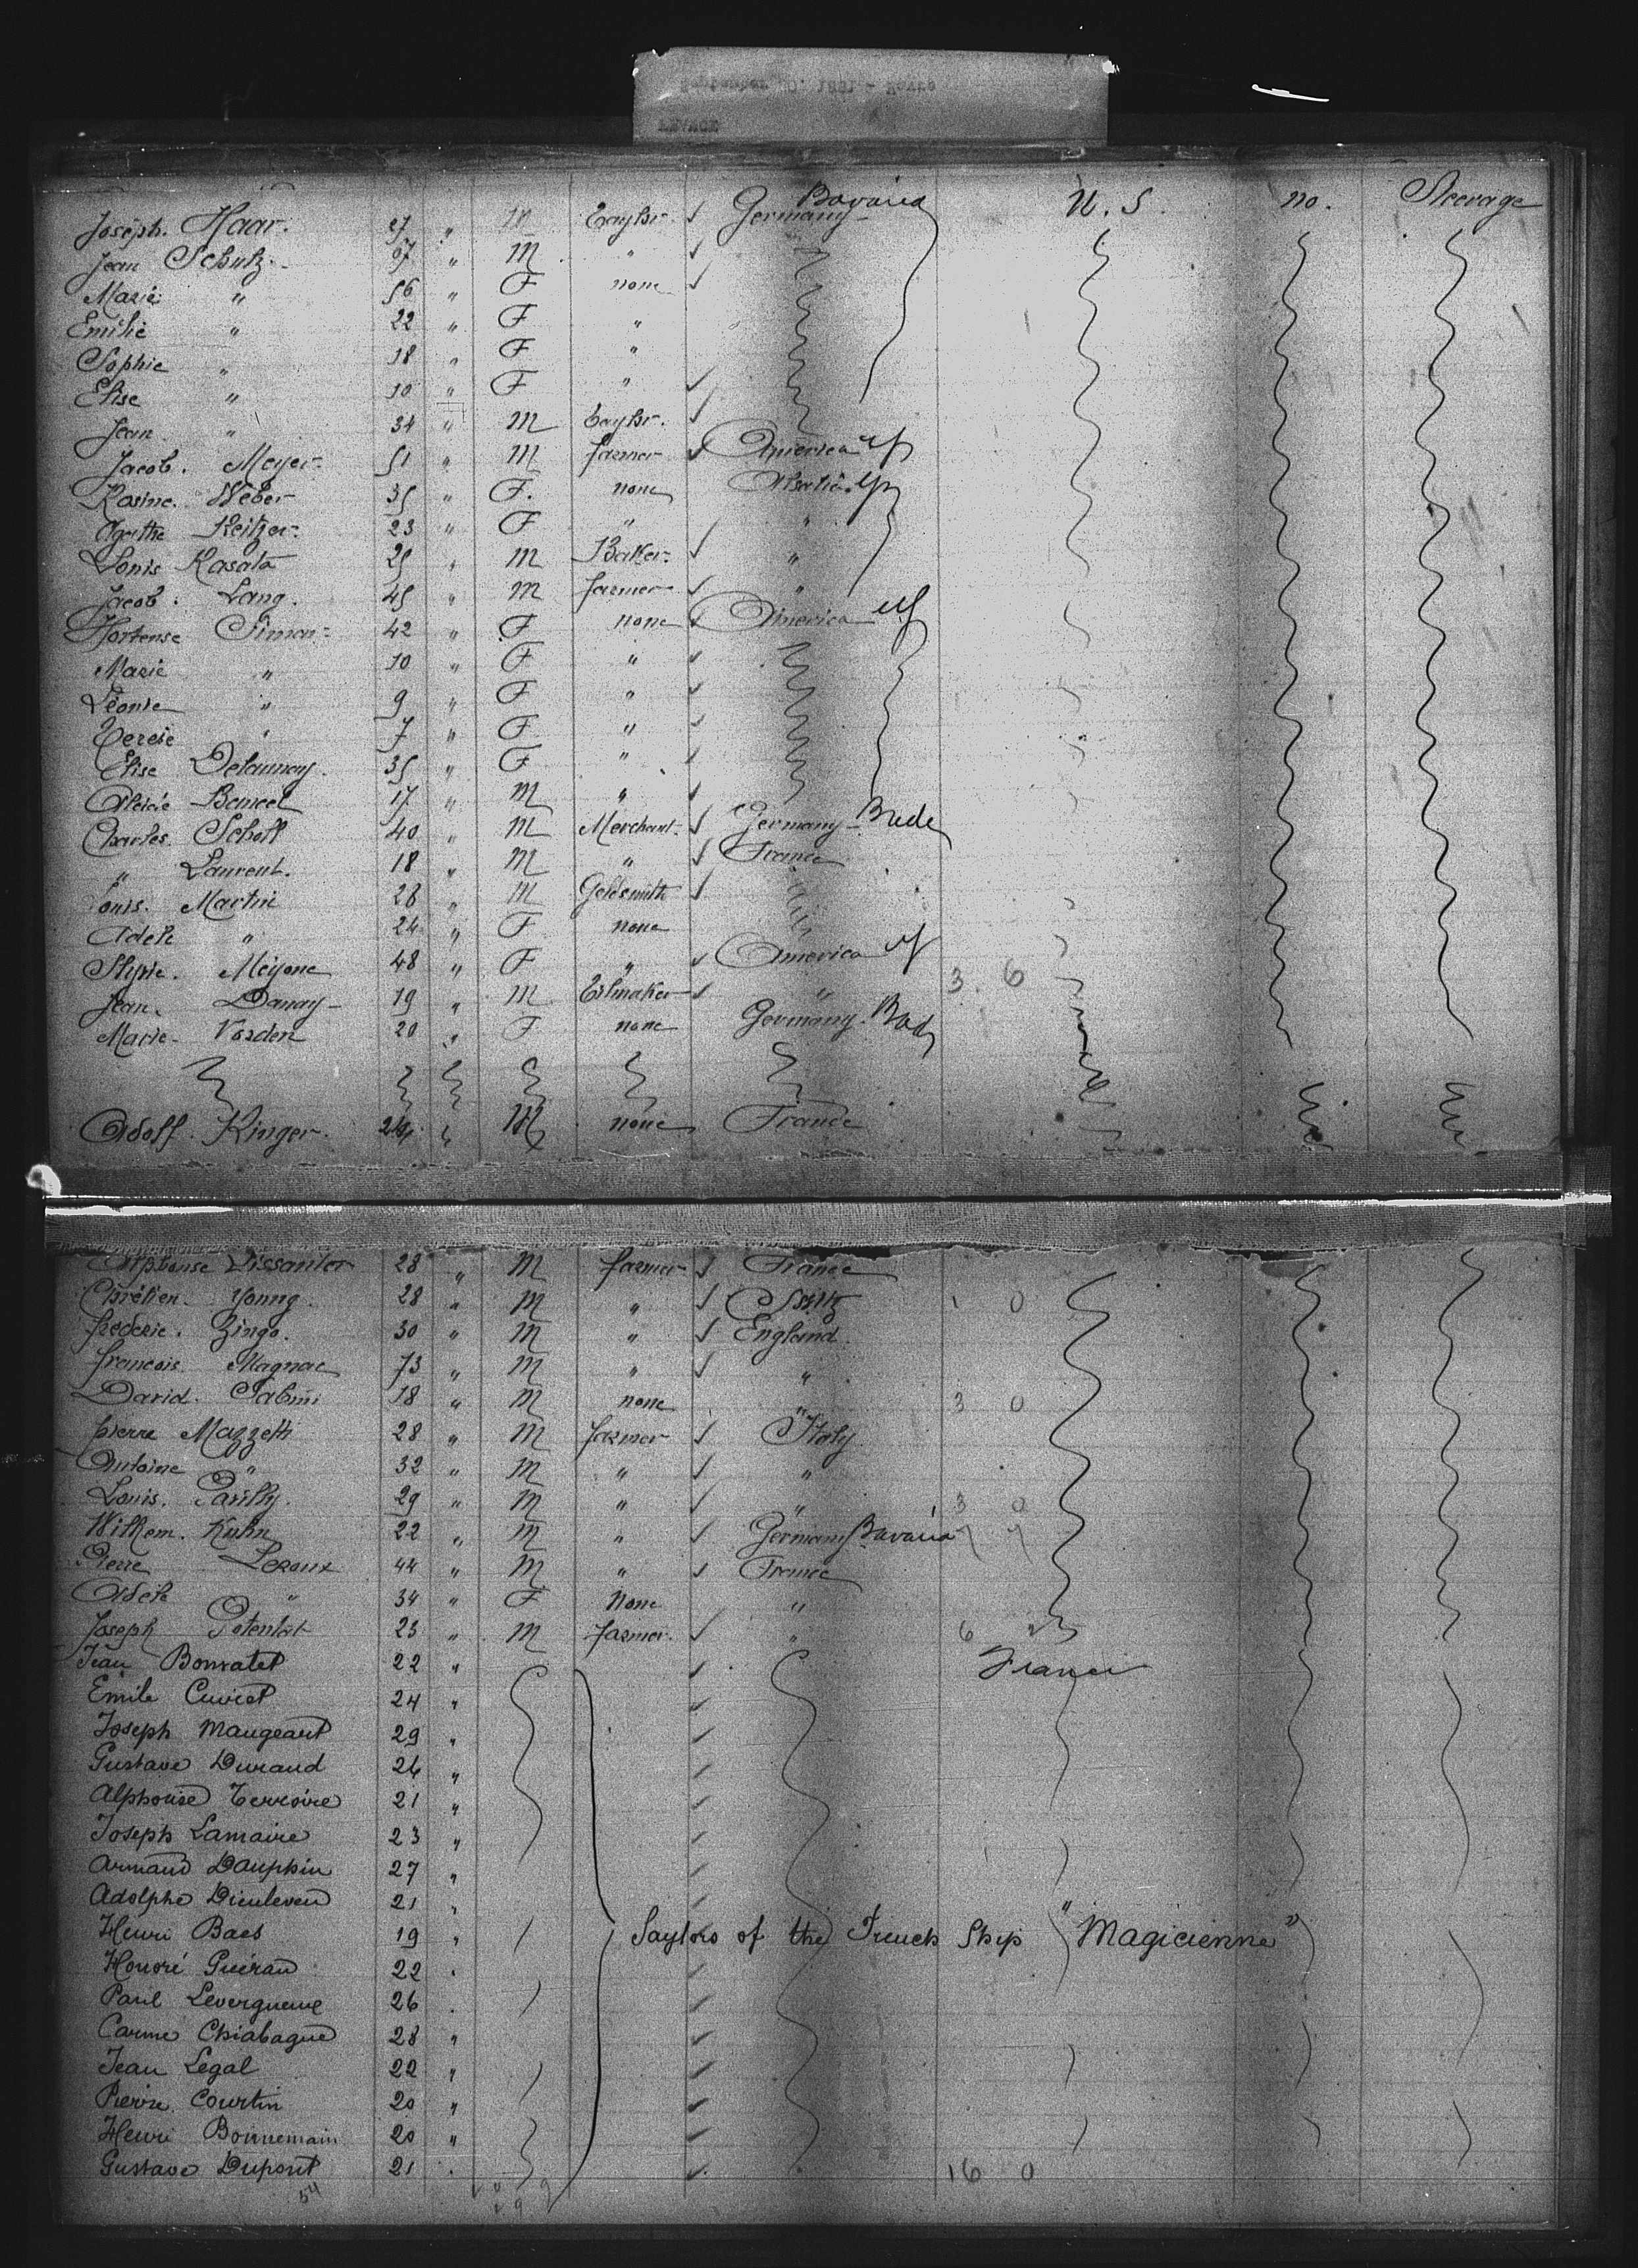 Bavaria
Joseph. Haar. 27 " M Taylor. Germany U. S. no. Steerage
Jean Schutz. 57 " M "
Marie " 56 " F none
Emilie " 22 " F "
Sophie " 18 " F "
Elise " 10 " F "
Jean " 34 " M Taylor.
Jacob. Meyer 51 " M farmer America
Rosine. Weber 35 " F. none
Agathe Keitzer 23 " F " "
Louis Kasata 25 " M Baker. "
Jacob. Lang. 45 " M farmer "
Hortense Simon 42 " F none America
Marie " 10 " F "
Léonie " 9 " F "
" 7 " F "
Elise Delaunay. 35 " F "
17 " M "
Charles. Scholl 40 " M Merchant. Germany - Bade
" Laurent. 18 " M " France
Louis. Martin 28 " M Goldsmith
Adele " 24 " F none
48 " F " America
Jean. Danay 19 " M "
3 6
Marie. Vorden 20 " F none Germany. Bad
Adolf. Kinger. 24 " M none France
Alphonse 28 " M farmer France
Chrétien. Young. 28 " M " 1 0
frederic. Zingo. 30 " M " England.
francois. Magnac 73 " M " "
David. 18 " M none " 3 0
pierre Mazzetti 28 " M farmer Italy
Antoine " 32 " M " "
Louis. 29 " M " " 3 0
Wilhem. Kuhn 22 " M " Germany Bavaria
Pierre Leroux 44 " M " France
Adele " 34 " F None "
Joseph Potentat 23 " M farmer. " 6
Jean Bonvalet 22 " France
Emile Cuvict 24 "
Joseph Maugeant 29 "
Gustave Durand 24 "
Alphonse Terroire 21 "
Joseph Lamaire 23 "
Armand Dauphin 27 "
Adolphe Dieuleveu 21 "
Henri Baes 19 " Saylors of the French Ship "Magicienne"
Honoré Guiran 22 "
Paul Levergneux 26 "
Carme Chiabague 28 "
Jean Legal 22 "
Pierre Courtin 20 "
Henri Bonnemain 20 "
Gustave Dupont 21 " 16 0
54